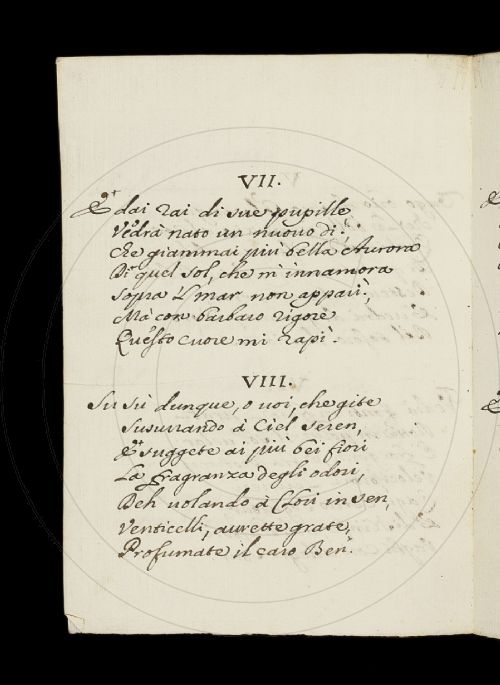 VII.
Et dai rai di sue pupille
Vedrà nato un nuovo di:
Che giammai più bella Aurora
Di quel sol, che m'innamora
Sopra 'l mar non apparì;
Ma con barbaro rigore
Questo cuore mi rapì.
VIII.
Su sù dunque, o voi, che gite
Susurrando à Ciel seren,
Et suggete ai più bei fiori
La fragranza degli odori,
Deh volando à Clori in sen,
Venticelli, aurette grate,
Profumate il caro Ben.